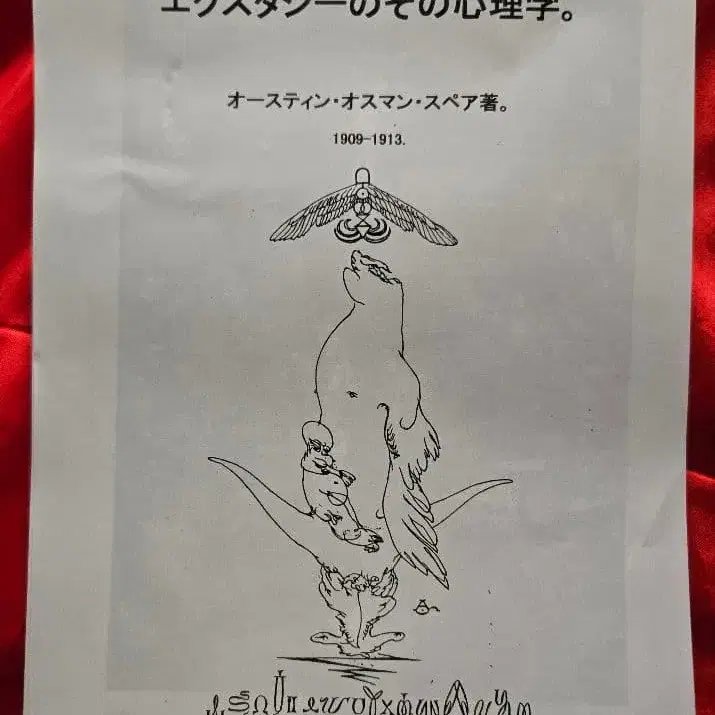 エクスタシーのその心理学。
オースティン・オスマン・スペア著。
1909-1913.